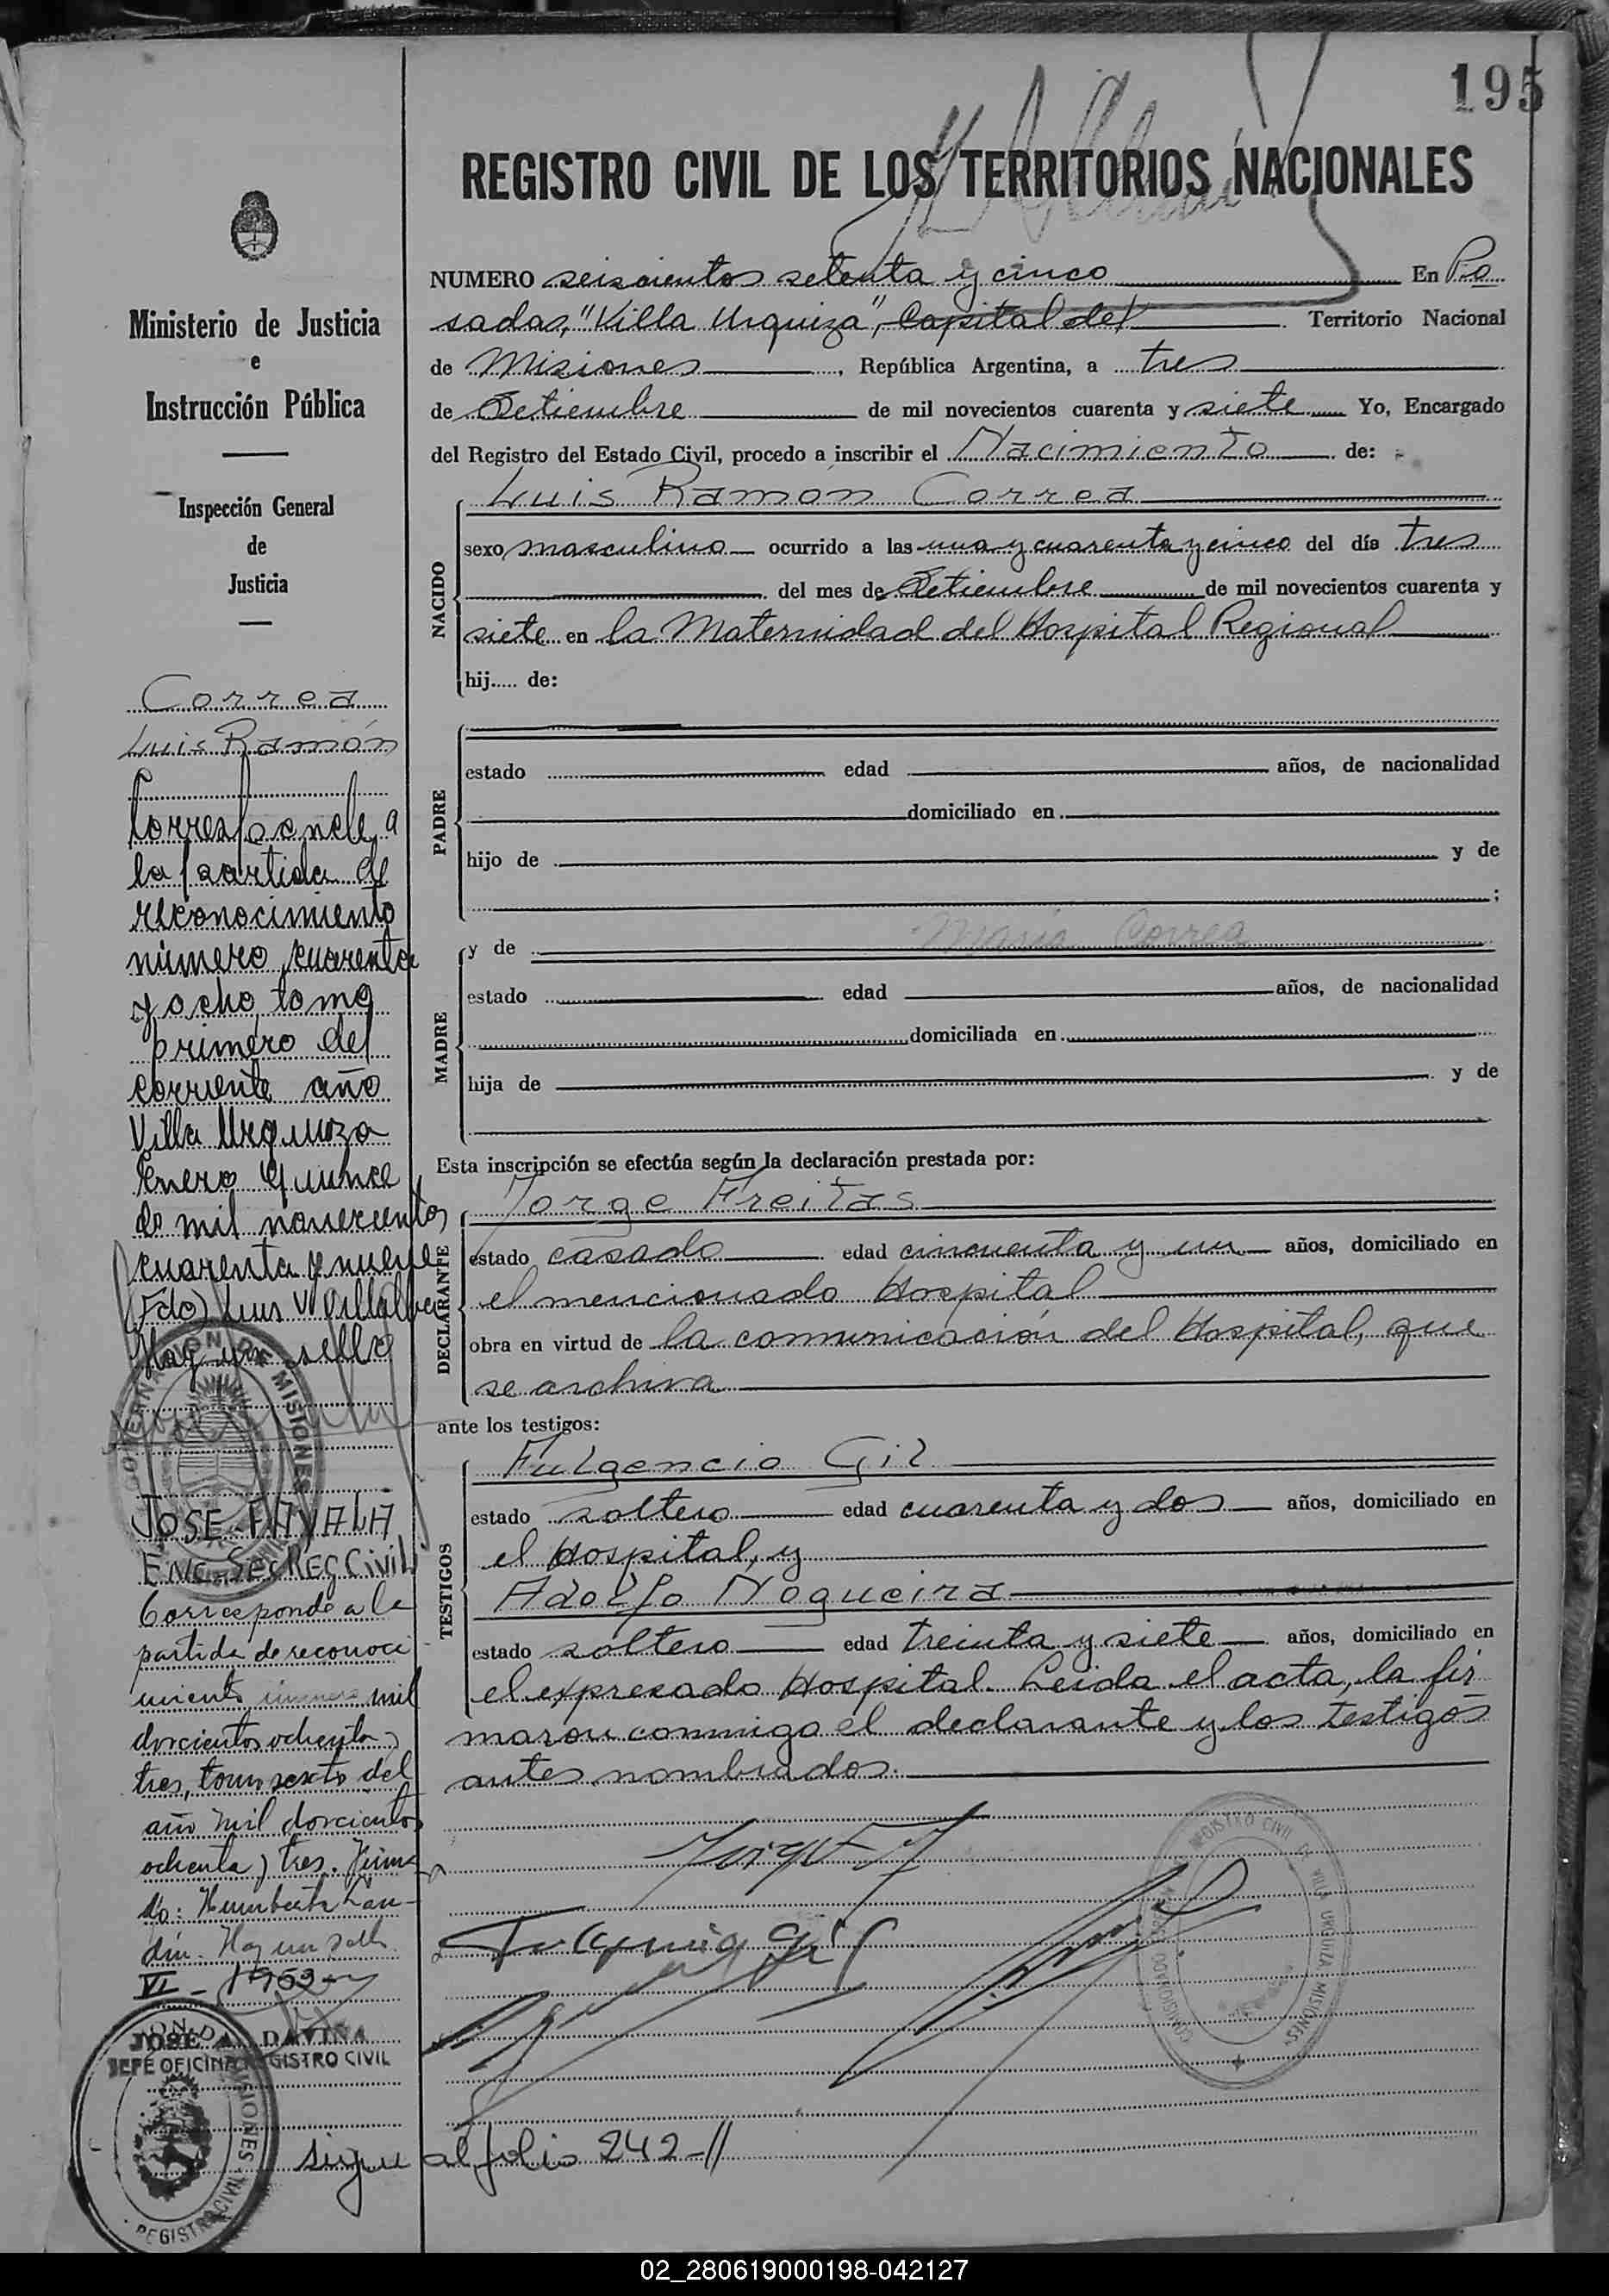 195
REGISTRO CIVIL DE LOS TERRITORIOS NACIONALES
NUMERO seiscientos setenta y cinco En Po
sadas, "Villa Urquiza", Capital del Territorio Nacional
de Misiones, República Argentina, a tres
de Setiembre de mil novecientos cuarenta y siete Yo, Encargado
del Registro del Estado Civil, procedo a inscribir el Nacimiento de:
Luis Ramon Correa
NACIDO
sexo, masculino ocurrido a las una y cuarenta y cinco del día tres
del mes de Setiembre de mil novecientos cuarenta y
siete en la Maternidad del Hospital Regional
hij..... de:
PADRE
estado edad años, de nacionalidad
domiciliado en
hijo de y de
;
MADRE
y de Maria Correa
estado edad años, de nacionalidad
domiciliada en
hija de y de
Esta inscripción se efectúa según la declaración prestada por:
Jorge Freitas
DECLARANTE
estado casado edad cincuenta y un años, domiciliado en
el mencionado Hospital
obra en virtud de la comunicación del Hospital, que
se archiva
ante los testigos:
Fulgencio Gil
TESTIGOS
estado soltero edad cuarenta y dos años, domiciliado en
el Hospital, y
Adolfo Nogueira
estado soltero edad treinta y siete años, domiciliado en
el expresado Hospital. Leida el acta, la fir
maron conmigo el declarante y los testigos
antes nombrados.
REGISTRO CIVIL DE VILLA URQUIZA MISIONES
sigue al folio 242-//
Ministerio de Justicia
e
Instrucción Pública
Inspección General
de
Justicia
Correa
Luis Ramón
Corresponde a
la partida de
reconocimiento
número cuarenta
y ocho tomo
primero del
corriente año
Villa Urquiza
Enero quince
de mil novecientos
cuarenta y nueve
(Fdo) Luis V Villalba
Hay un sello
GOBERNACION DE MISIONES
JOSE F AYALA
ENC. Sec Reg Civil
Corresponde a la
partida de reconoci
miento número mil
doscientos ochenta y
tres, tomo sexto del
año mil doscientos
ochenta y tres. Firma
do: Humberto Lan-
din. Hay un sello
VI - 1953
JOSE A. DAVIÑA
JEFE OFICINA REGISTRO CIVIL
MISIONES
REGISTRO CIVIL
02_280619000198-042127